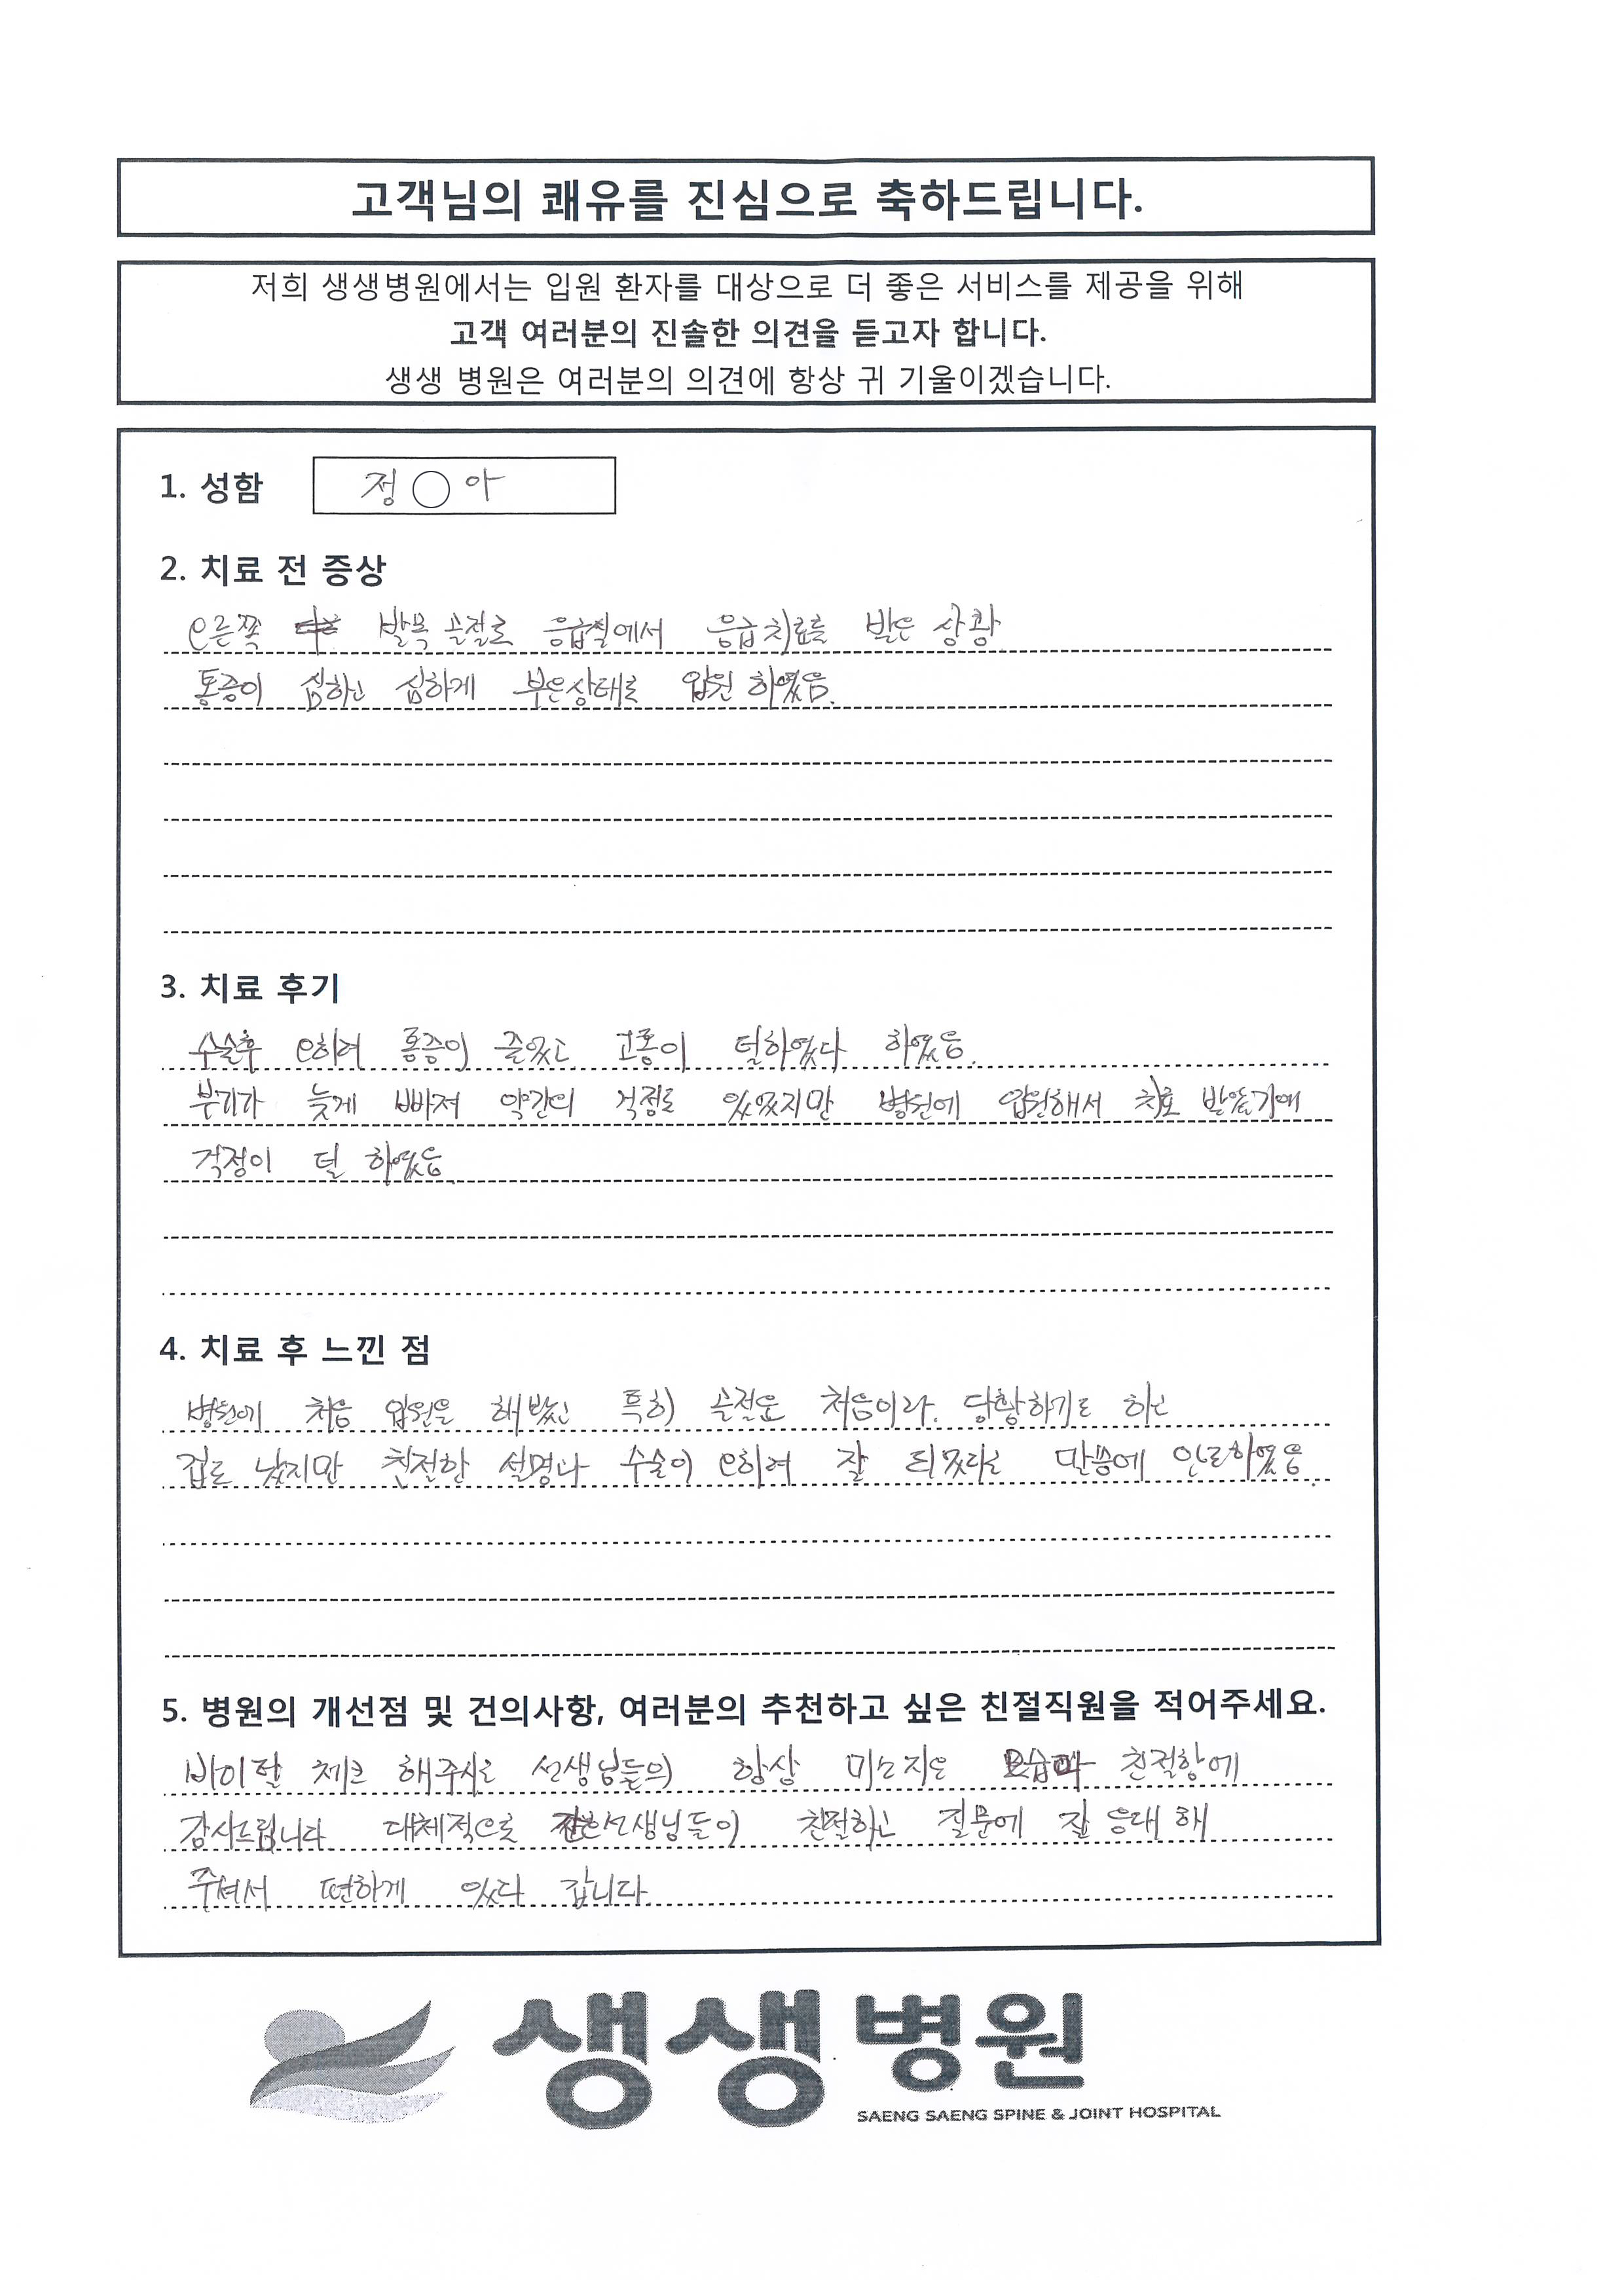 고객님의 쾌유를 진심으로 축하드립니다.
저희 생생병원에서는 입원 환자를 대상으로 더 좋은 서비스를 제공을 위해
고객 여러분의 진솔한 의견을 듣고자 합니다.
생생 병원은 여러분의 의견에 항상 귀 기울이겠습니다.
1. 성함 정○아
2. 치료 전 증상
오른쪽 발목 골절로 응급실에서 응급치료를 받은 상황
통증이 심하고 심하게 부은상태로 입원 하였음.
3. 치료 후기
수술후 오히려 통증이 줄었고 고통이 덜하였다 하였음.
부기가 늦게 빠져 약간의 걱정도 있었지만 병원에 입원해서 치료 받았기에
걱정이 덜 하였음.
4. 치료 후 느낀 점
병원에 처음 입원을 해봤고 특히 골절은 처음이라. 당황하기도 하고
겁도 났지만 친절한 설명과 수술이 오히려 잘 되었다는 말씀에 안도하였음.
5. 병원의 개선점 및 건의사항, 여러분의 추천하고 싶은 친절직원을 적어주세요.
바이탈 체크 해주시는 선생님들의 항상 미소지은 모습과 친절함에
감사드립니다. 대체적으로 선생님들이 친절하고 질문에 잘 응대 해
주셔서 편하게 있다 갑니다.
생생병원
SAENG SAENG SPINE & JOINT HOSPITAL